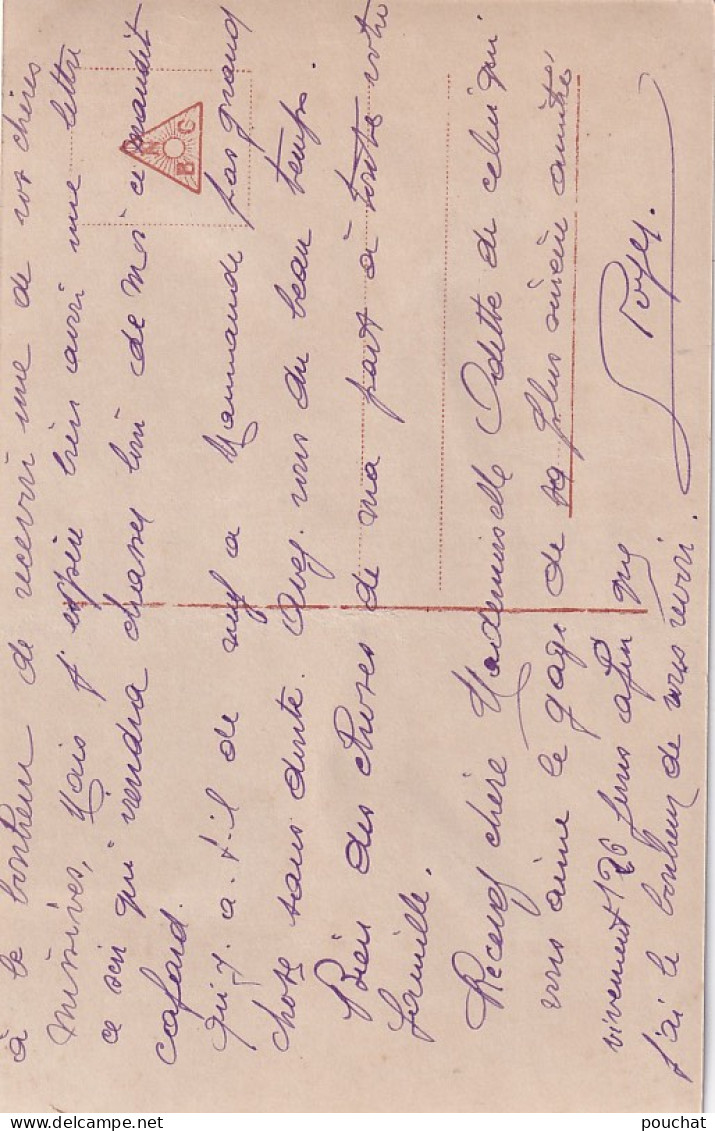 à le bonheur de recevoir une de vos chères
missives, Mais j'espère bien avoir une lettre
ce soir qui viendra chasser loin de moi ce maudit
cafard.
qui y a-t-il de neuf à Marmande pas grand
chose sans doute. Avez-vous du beau temps.
Bien des choses de ma part à toute votre
famille.
Recevez chère Mademoiselle Odette de celui qui
vous aime le gage de sa plus sincère amitié
vivement 126 jours afin que
j'ai le bonheur de vous revoir.
BNC
pouchat
delcampe.net